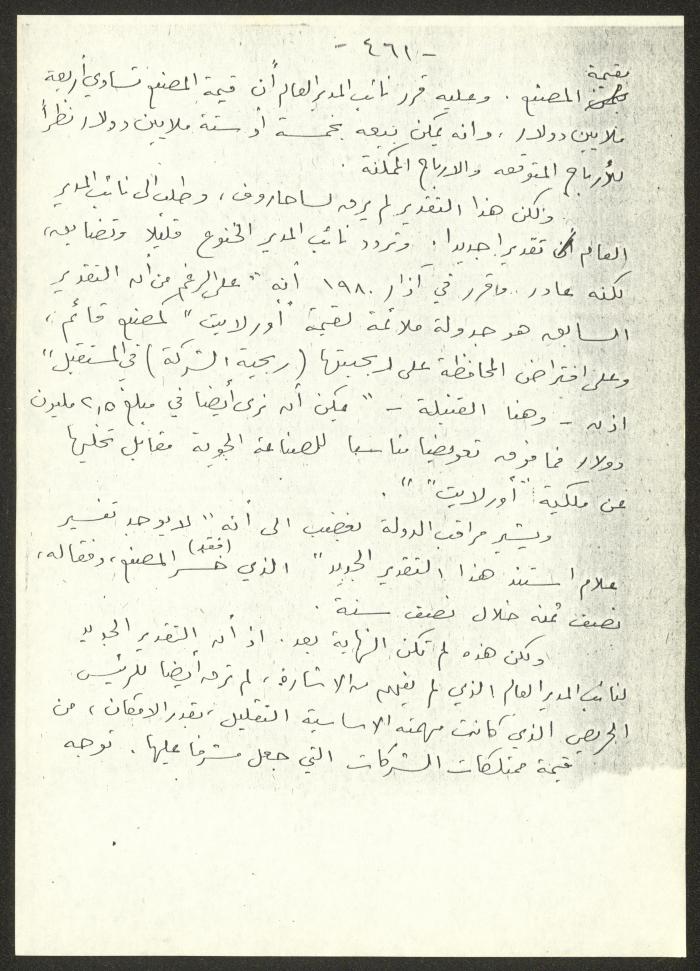 - ٤٦١ -
بقيمة
المصنع . وعليه قرر نائب المدير العام أن قيمة المصنع تساوي أربعة
ملايين دولار ، وانه يمكن بيعه بخمسة أو ستة ملايين دولار نظرا
للأرباح المتوقعه والارباح الممكنة .
ولكن هذا التقدير لم يرق لساحاروف ، وطلب الى نائب المدير
العام تقديرا جديدا . وتردد نائب المدير الخنوع قليلا وتضايق ،
لكنه عاد وقرر في آذار ١٩٨٠ أنه " على الرغم من أن التقدير
السابق هو جدولة ملائمة لقيمة " أورلايت " كمصنع قائم ،
وعلى افتراض المحافظة على ربحيتها ( ربحية الشركة ) في المستقبل "
اذن - وهنا القنبلة - " يمكن أن نرى أيضا في مبلغ ٢,٥ مليون
دولار فما فوق تعويضا مناسبا للصناعة الجوية مقابل تخليها
عن ملكية " أورلايت " " .
ويشير مراقب الدولة بغضب الى أنه " لا يوجد تفسير
علام استند هذا التقدير الجديد " الذي خسر (فقد) المصنع ، وفقا له ،
نصف ثمنه خلال نصف سنة .
ولكن هذه لم تكن النهاية بعد . اذ أن التقدير الجديد
لنائب المدير العام الذي لم يفهم الاشارة ، لم ترق أيضا للرئيس
الحريص الذي كانت مهمته الاساسية التقليل ، بقدر الامكان ، من
قيمة ممتلكات الشركات التي جعل مشرفا عليها . توجه